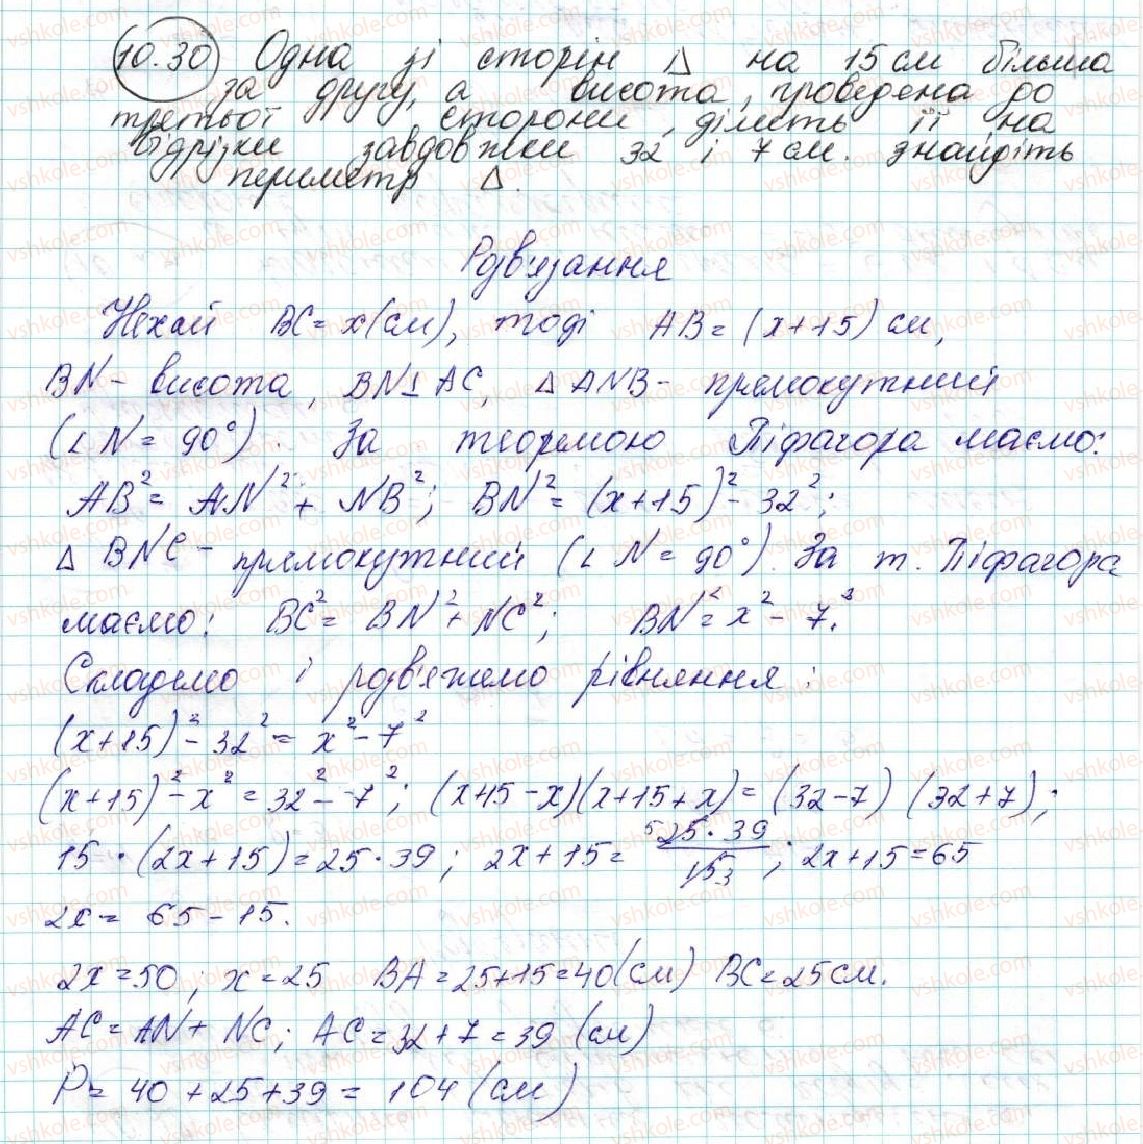 10.30 Одна зі сторін △ на 15 см більша
за другу, а висота, проведена до
третьої сторони, ділить її на
відрізки завдовжки 32 і 7 см. Знайдіть
периметр △.
Розв'язання
Нехай BC = x (см), тоді AB = (x+15) см,
BN - висота, BN⊥AC, △ANB - прямокутний
(∠N = 90°). За теоремою Піфагора маємо:
AB² = AN² + NB²; BN² = (x+15)² - 32²;
△BNC - прямокутний (∠N = 90°). За т. Піфагора
маємо: BC² = BN² + NC²; BN² = x² - 7².
Складемо і розв'яжемо рівняння:
(x+15)² - 32² = x² - 7²
(x+15)² - x² = 32² - 7²; (x+15-x)(x+15+x) = (32-7)(32+7);
15·(2x+15) = 25·39; 2x+15 = ⁵25·39/15₃; 2x+15 = 65
2x = 65 - 15.
2x = 50; x = 25 BA = 25+15 = 40 (см) BC = 25 см.
AC = AN + NC; AC = 32 + 7 = 39 (см)
P = 40 + 25 + 39 = 104 (см)